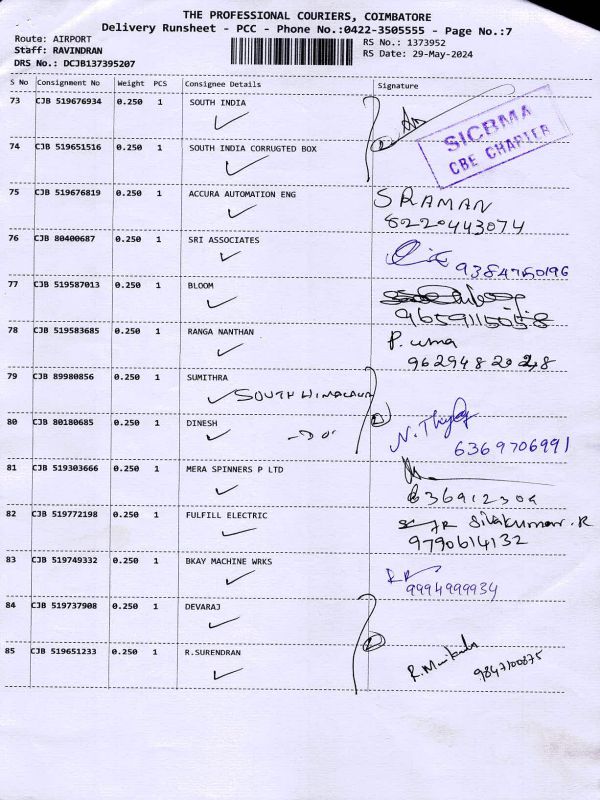 THE PROFESSIONAL COURIERS, COIMBATORE
Delivery Runsheet - PCC - Phone No.:0422-3505555 - Page No.:7
Route: AIRPORT
Staff: RAVINDRAN
DRS No.: DCJB137395207
RS No.: 1373952
RS Date: 29-May-2024
S No Consignment No Weight PCS Consignee Details Signature
73 CJB 519676934 0.250 1 SOUTH INDIA
SICBMA
CBE CHAPTER
74 CJB 519651516 0.250 1 SOUTH INDIA CORRUGTED BOX
75 CJB 519676819 0.250 1 ACCURA AUTOMATION ENG S RAMAN
8220443074
76 CJB 80400687 0.250 1 SRI ASSOCIATES
9384760196
77 CJB 519587013 0.250 1 BLOOM
78 CJB 519583685 0.250 1 RANGA NANTHAN P. uma
79 CJB 89980856 0.250 1 SUMITHRA
SOUTH HIMALAYA
80 CJB 80180685 0.250 1 DINESH -Do-
6369706991
81 CJB 519303666 0.250 1 MERA SPINNERS P LTD
82 CJB 519772198 0.250 1 FULFILL ELECTRIC Sivakumar. R
9790614132
83 CJB 519749332 0.250 1 BKAY MACHINE WRKS
9994999934
84 CJB 519737908 0.250 1 DEVARAJ
85 CJB 519651233 0.250 1 R.SURENDRAN
9847100875